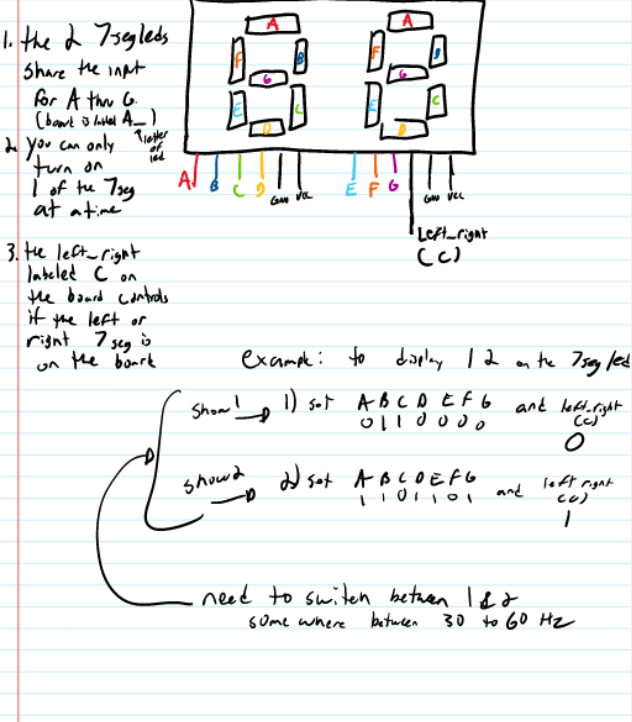 1. the 2 7seg leds
share the input
for A thru G.
(board is label A_)
letter
of
led
2. you can only
turn on
1 of the 7seg
at a time
3. the left_right
labeled C on
the board controls
if the left or
right 7seg is
on the board
A
F
B
G
E
C
D
A
F
B
G
E
C
D
A B C D GND VCC
E F G GND VCC
Left_right
(C)
example: to display 12 on the 7seg led
show 1 1) set A B C D E F G and left_right
(C)
0 1 1 0 0 0 0
0
show 2 2) set A B C D E F G and left right
(C)
1 1 0 1 1 0 1
1
need to switch between 1 & 2
some where between 30 to 60 Hz